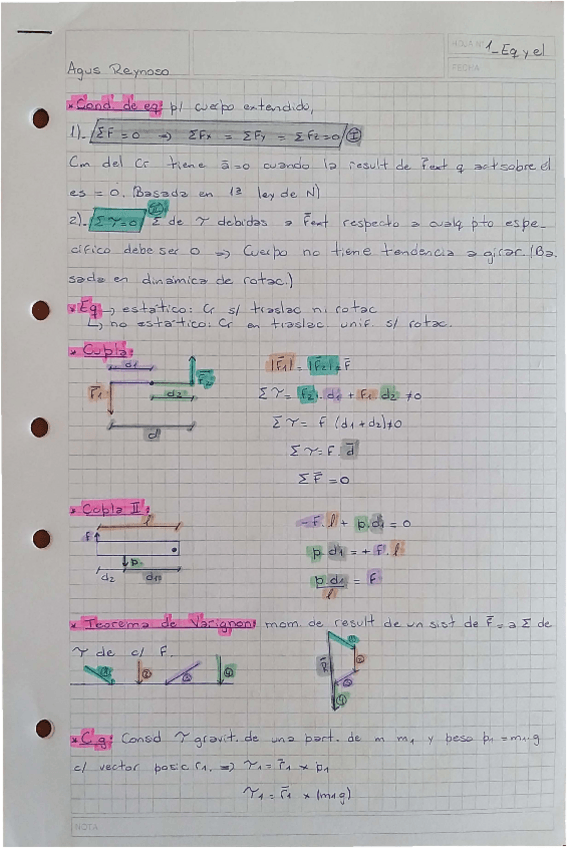 HOJA Nº 1_ Eq y el
FECHA
Agus Reynoso
* Cond. de eq: p/ cuerpo extendido,
1)_ ΣF̄ = 0 → ΣFx = ΣFy = ΣFz = 0 (I)
Cm del Cr tiene ā=0 cuando la result de F̄ext q act sobre él
es = 0. (Basada en 1ª ley de N)
2)_ Στ = 0 (II) Σ de τ debidas a F̄ext respecto a cualq pto espe_
cífico debe ser 0 ⇒ Cuerpo no tiene tendencia a girar. (Ba_
sada en dinámica de rotac.)
* Eq → estático: Cr s/ traslac ni rotac
↳ no estático: Cr en traslac. unif. s/ rotac.
* Cupla:
d1
F̄1
F̄2
d2
d
|F̄1| = |F̄2| = F̄
Στ = F2 . d1 + F1 . d2 ≠ 0
Στ = F (d1 + d2) ≠ 0
Στ = F . d̄
ΣF̄ = 0
* Cupla II:
l
F
p
d2
d1
-F . l + p . d1 = 0
p . d1 = + F . l
p . d1 / l = F
* Teorema de Varignon: mom. de result de un sist de F̄ = a Σ de
τ de c/ F.
R̄
* C.g: Consid τ gravit. de una part. de m m1 y peso p1 = m1 . g
c/ vector posic r1. ⇒ τ1 = r̄1 x p1
τ1 = r̄1 x (m1 g)
NOTA